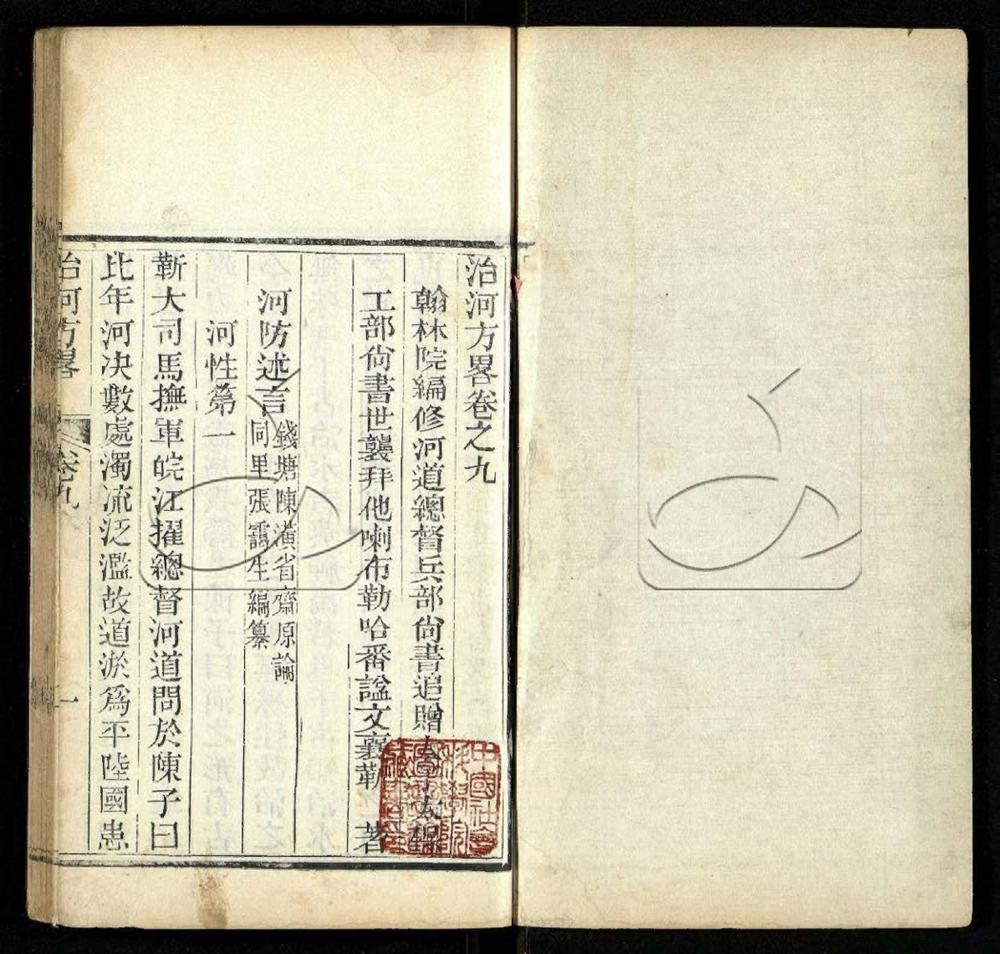 治河方畧卷之九
翰林院編修河道總督兵部尚書追贈太子太保
工部尚書世襲拜他喇布勒哈番諡文襄靳 著
河防述言
錢塘陳潢省齋原論
同里張靄生編纂
河性第一
靳大司馬撫軍皖江擢總督河道問於陳子曰
比年河決數處濁流泛濫故道淤爲平陸國患
治河方畧 卷九 一
中國社會
科學院